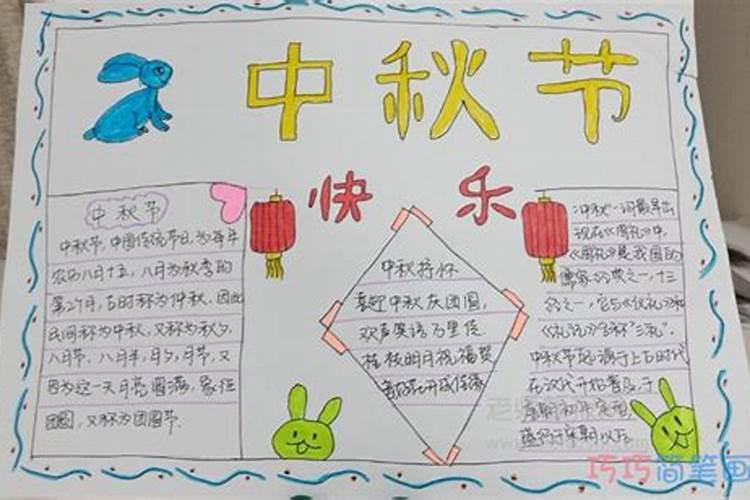 中秋节
快乐
中秋节
中秋节,中国传统节日,为每年
农历八月十五,八月为秋季的
第二个月,古时称为仲秋,因此
民间称为中秋,又称为秋夕,
八月节,八月半,月夕,月节,又
因为这一天月亮圆满,象征
团圆,又称为团圆节.
中秋抒怀
喜迎中秋庆团圆,
欢声笑语万里传
桂枝明月祝福贺
“中秋”一词最早出
现在《周礼》中.
《周礼》是我国的
儒家经典之一,十三
经之一,它与《仪礼》和
《礼记》合称“三礼”.
中秋节起源于上古时代
在汉代开始普及于
唐朝初年定型,
盛行于宋朝以后
巧巧简笔画